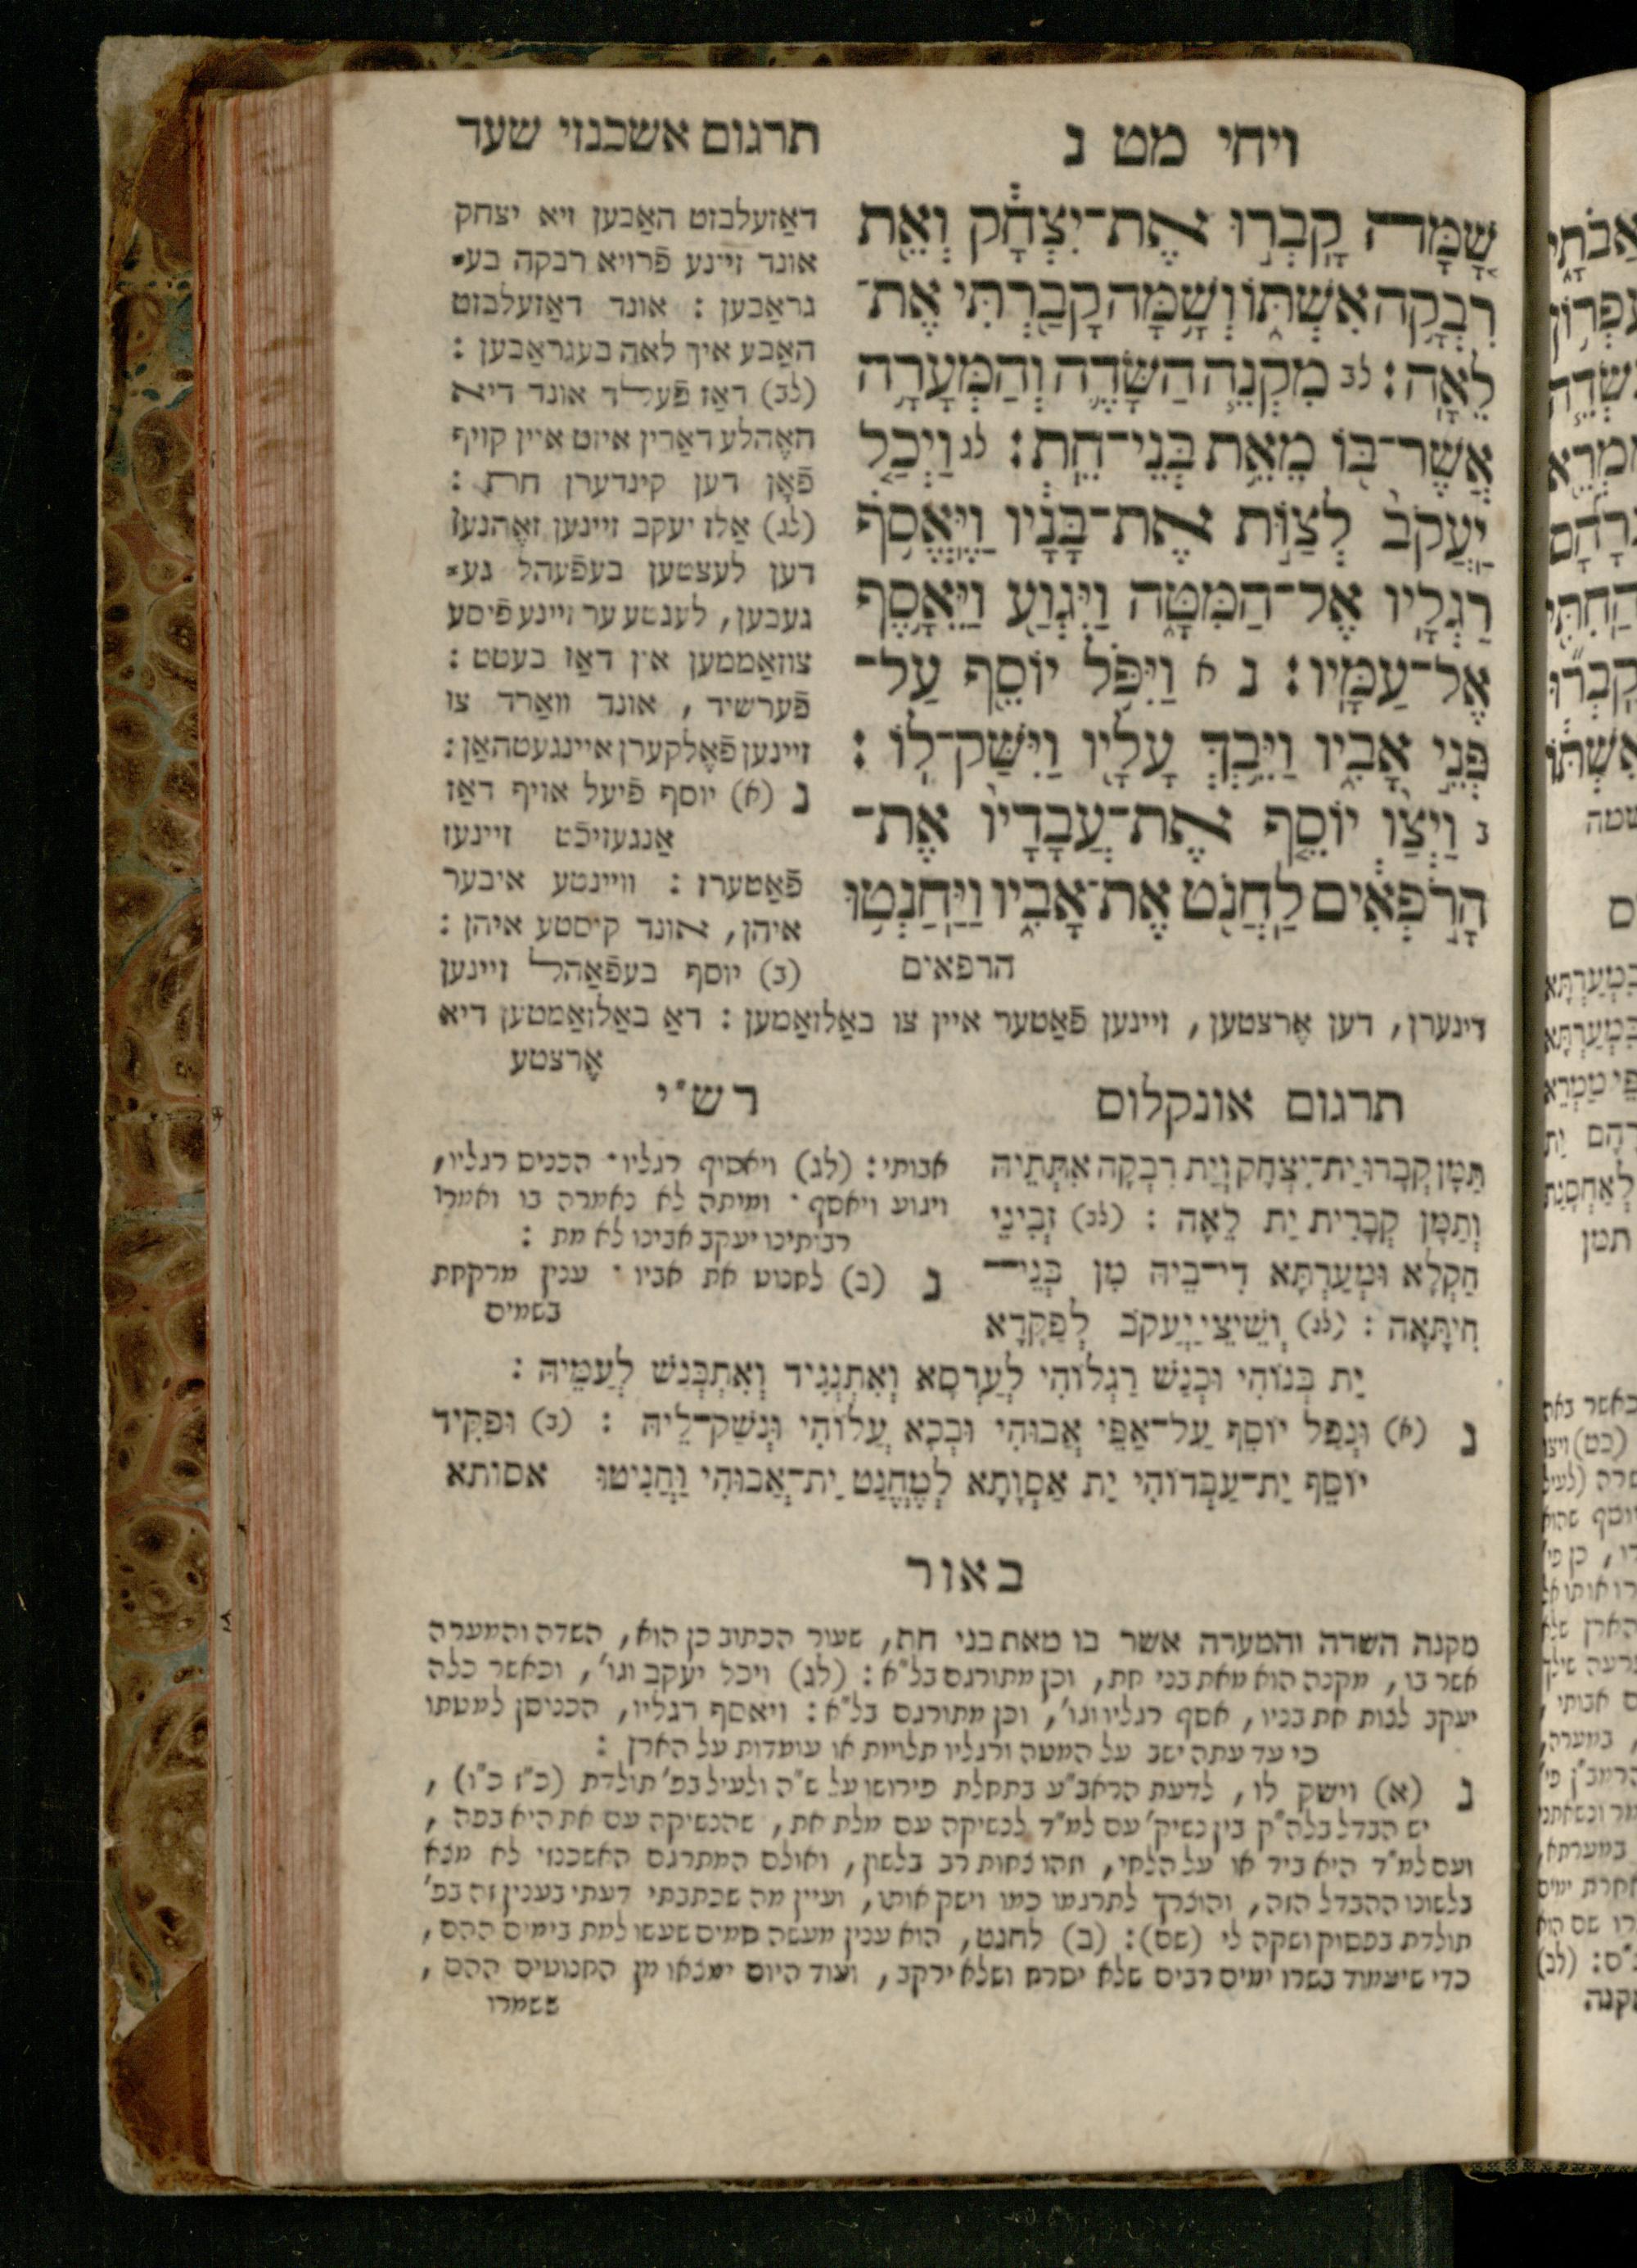 ויחי מט נ
תרגום אשכנזי שער
שָׁ֣מָּה קָבְר֞וּ אֶת־יִצְחָ֗ק וְאֵ֖ת
רִבְקָ֣ה אִשְׁתּ֑וֹ וְשָׁ֥מָּה קָבַ֖רְתִּי אֶת־
לֵאָֽה׃ לב מִקְנֵ֧ה הַשָּׂדֶ֛ה וְהַמְּעָרָ֥ה
אֲשֶׁר־בּ֖וֹ מֵאֵ֥ת בְּנֵי־חֵֽת׃ לג וַיְכַ֤ל
יַעֲקֹב֙ לְצַוֺּ֣ת אֶת־בָּנָ֔יו וַיֶּאֱסֹ֥ף
רַגְלָ֖יו אֶל־הַמִּטָּ֑ה וַיִּגְוַ֖ע וַיֵּאָ֥סֶף
אֶל־עַמָּֽיו׃ נ א וַיִּפֹּ֥ל יוֹסֵ֖ף עַל־
פְּנֵ֣י אָבִ֑יו וַיֵּ֥בְךְּ עָלָ֖יו וַיִּשַּׁק־לֽוֹ׃
ב וַיְצַ֨ו יוֹסֵ֤ף אֶת־עֲבָדָיו֙ אֶת־
הָרֹ֣פְאִ֔ים לַחֲנֹ֖ט אֶת־אָבִ֑יו וַיַּחַנְט֥וּ
הרפאים
דאַזעלבזט האַבען זיא יצחק
אונד זיינע פֿרויא רבקה בע⸗
גראַבען : אונד דאַזעלבזט
האַבע איך לאה בעגראַבען :
(לב) דאַז פֿעלד אונד דיא
האָהלע דאַרין איזט איין קויף
פֿאָן דען קינדערן חת :
(לג) אַלז יעקב זיינען זאָהנען
דען לעצטען בעפֿעהל גע⸗
געבען, לענטע ער זיינע פֿיסע
צוזאַממען אין דאַז בעטט :
פֿערשיד, אונד וואַרד צו
זיינען פֿאָלקערן איינגעטהאַן :
נ (א) יוסף פֿיעל אויף דאַז
אַנגעזיכֿט זיינעז
פֿאַטערז : וויינטע איבער
איהן, אונד קיסטע איהן :
(ב) יוסף בעפֿאַהל זיינען
דינערן, דען אֶרצטען, זיינען פֿאַטער איין צו באַלזאַמען : דאַ באַלזאַמטען דיא
אֶרצטע
תרגום אונקלוס
תַּמָּן קְבָרוּ יַת־יִצְחָק וְיַת רִבְקָה אִתְּתֵיהּ
וְתַמָּן קְבָרִית יַת לֵאָה : (לב) זְבִינֵי
חַקְלָא וּמְעַרְתָּא דִי־בֵיהּ מִן בְּנֵי־
חִיתָּאָה : (לג) וְשֵׁיצֵי יַעֲקֹב לְפַקָּדָא
יַת בְּנוֹהִי וּכְנַשׁ רַגְלוֹהִי לְעַרְסָא וְאִתְנְגִיד וְאִתְכְּנִשׁ לְעַמֵּיהּ :
נ (א) וּנְפַל יוֹסֵף עַל־אַפֵּי אֲבוּהִי וּבְכָא עֲלוֹהִי וּנְשַׁק־לֵיהּ : (ב) וּפַקִּיד
יוֹסֵף יַת־עַבְדוֹהִי יַת אַסְוָתָא לְמֶחֱנַט יַת־אֲבוּהִי וַחֲנִיטוּ אסותא
רש״י
אבותי : (לג) ויאסוף רגליו · הכניס רגליו,
ויגוע ויאסף · ומיתה לא נאמרה בו ואמרו
רבותינו יעקב אבינו לא מת :
נ (ב) לחנוט את אביו · ענין מרקחת
בשמים
באור
מקנה השדה והמערה אשר בו מאת בני חת, שעור הכתוב כן הוא, השדה והמערה
אשר בו, מקנה הוא מאת בני חת, וכן מתורגם בל״א : (לג) ויכל יעקב וגו׳, וכאשר כלה
יעקב לצות את בניו, אסף רגליו וגו׳, וכן מתורגם בל״א : ויאסף רגליו, הכניסן למטתו
כי עד עתה ישב על המטה ורגליו תלויות או עומדות על הארץ :
נ (א) וישק לו, לדעת הראב״ע בתחלת פירושו על ש״ה ולעיל בפ׳ תולדת (כ״ז כ״ו),
יש הבדל בלה״ק בין נשיק׳ עם למ״ד לנשיקה עם מלת את, שהנשיקה עם את היא בפה,
ועם למ״ד היא ביד או על הלחי, וזהו צחות רב בלשון, ואולם המתרגם האשכנזי לא מצא
בלשונו ההבדל הזה, והוצרך לתרגמו כמו וישק אותו, ועיין מה שכתבתי דעתי בענין זה בפ׳
תולדת בפסוק ושקה לי (שם) : (ב) לחנט, הוא ענין מעשה סמים שעשו למת בימים ההם,
כדי שיצמוד בשרו ימים רבים שלא יסרח ושלא ירקב, ועוד היום ימצאו מן החנוטים ההם,
ששמרו